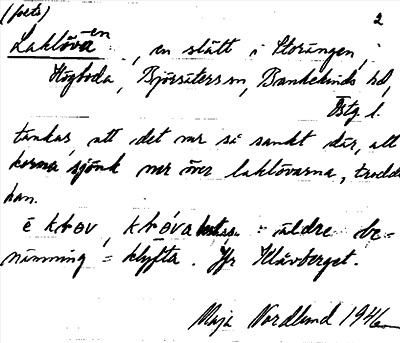 (forts) 2
Laklöva en, en slått i Storängen,
Högboda, Björsäters sn, Bankekinds hd,
Östg. l.
tänkas, att det var så sankt där, att
korna sjönk ner över laklövarna, trodde
han.
é kʟøv, kʟóva äldre be-
nämning = klyfta. Jfr Klövberget.
Maja Nordlund 1946